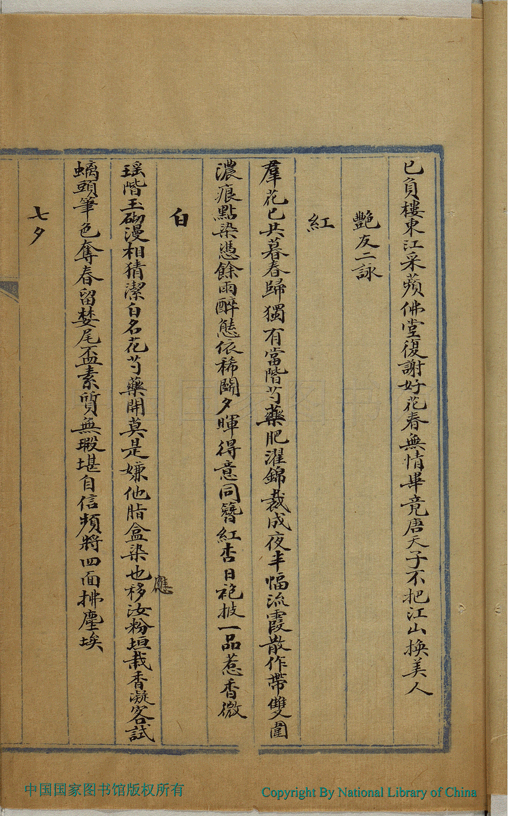 已負樓東江采蘋佛堂復謝好花春無情畢竟唐天子不把江山換美人
艷友二詠
紅
羣花已共暮春歸獨有當階芍藥肥濯錦裁成夜半幅流霞散作帶雙圍
濃痕點染憑餘雨醉態依稀關夕暉得意同簪紅杏日袍披一品惹香微
白
瑶階玉砌漫相猜潔白名花芍藥開真是嫌他脂盒染也移汝粉垣栽香凝客試
應
螭頭筆色奪春留婪尾盃素質無瑕堪自信頻將四面拂塵埃
七夕
中国国家图书馆版权所有
Copyright By National Library of China